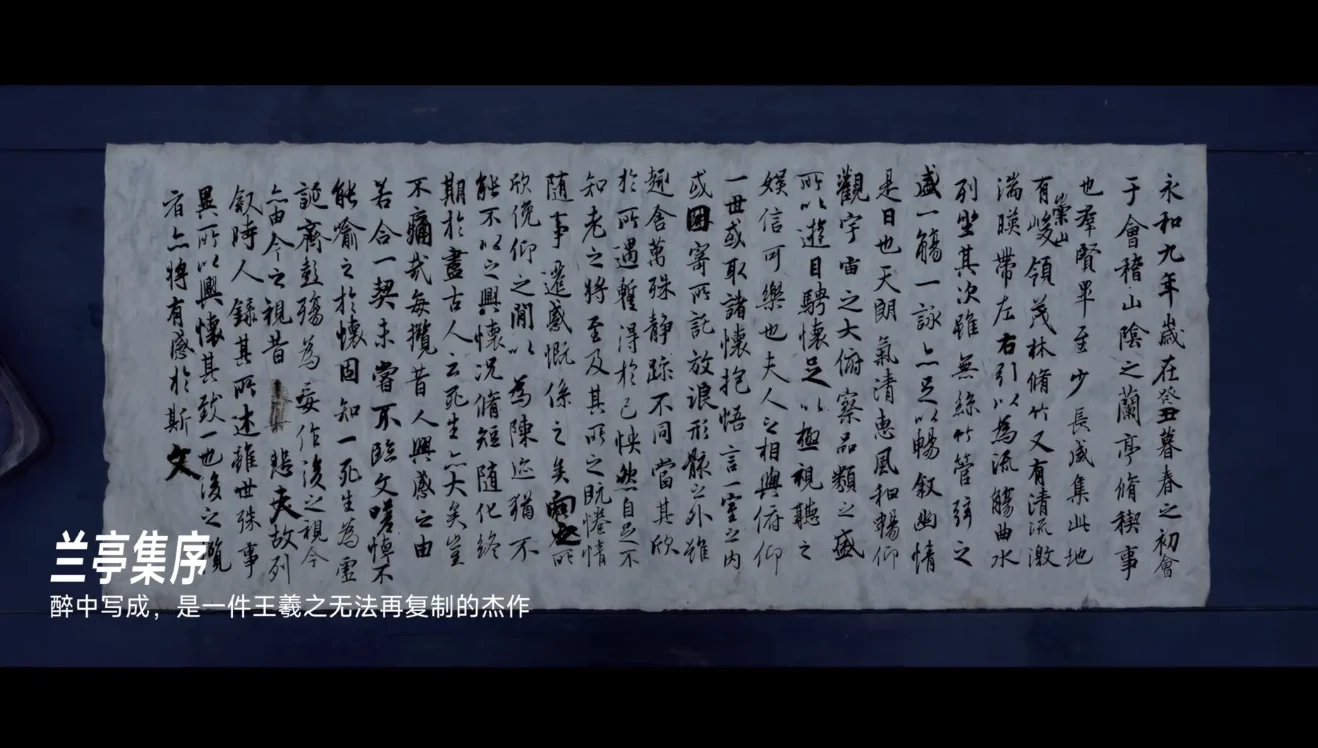 永和九年歲在癸丑暮春之初會
于會稽山陰之蘭亭脩稧事
也羣賢畢至少長咸集此地
有崇山峻領茂林脩竹又有清流激
湍暎帶左右引以為流觴曲水
列坐其次雖無絲竹管弦之
盛一觴一詠亦足以暢叙幽情
是日也天朗氣清惠風和暢仰
觀宇宙之大俯察品類之盛
所以遊目騁懷足以極視聽之
娛信可樂也夫人之相與俯仰
一世或取諸懷抱悟言一室之內
或因寄所託放浪形骸之外雖
趣舍萬殊靜躁不同當其欣
於所遇暫得於己怏然自足不
知老之將至及其所之既惓情
隨事遷感慨係之矣向之所
欣俛仰之閒以為陳迹猶不
能不以之興懷況脩短隨化終
期於盡古人云死生亦大矣豈
不痛哉每攬昔人興感之由
若合一契未嘗不臨文嗟悼不
能喻之於懷固知一死生為虛
誕齊彭殤為妄作後之視今
亦由今之視昔悲夫故列
叙時人錄其所述雖世殊事
異所以興懷其致一也後之覽
者亦將有感於斯文
兰亭集序
醉中写成，是一件王羲之无法再复制的杰作